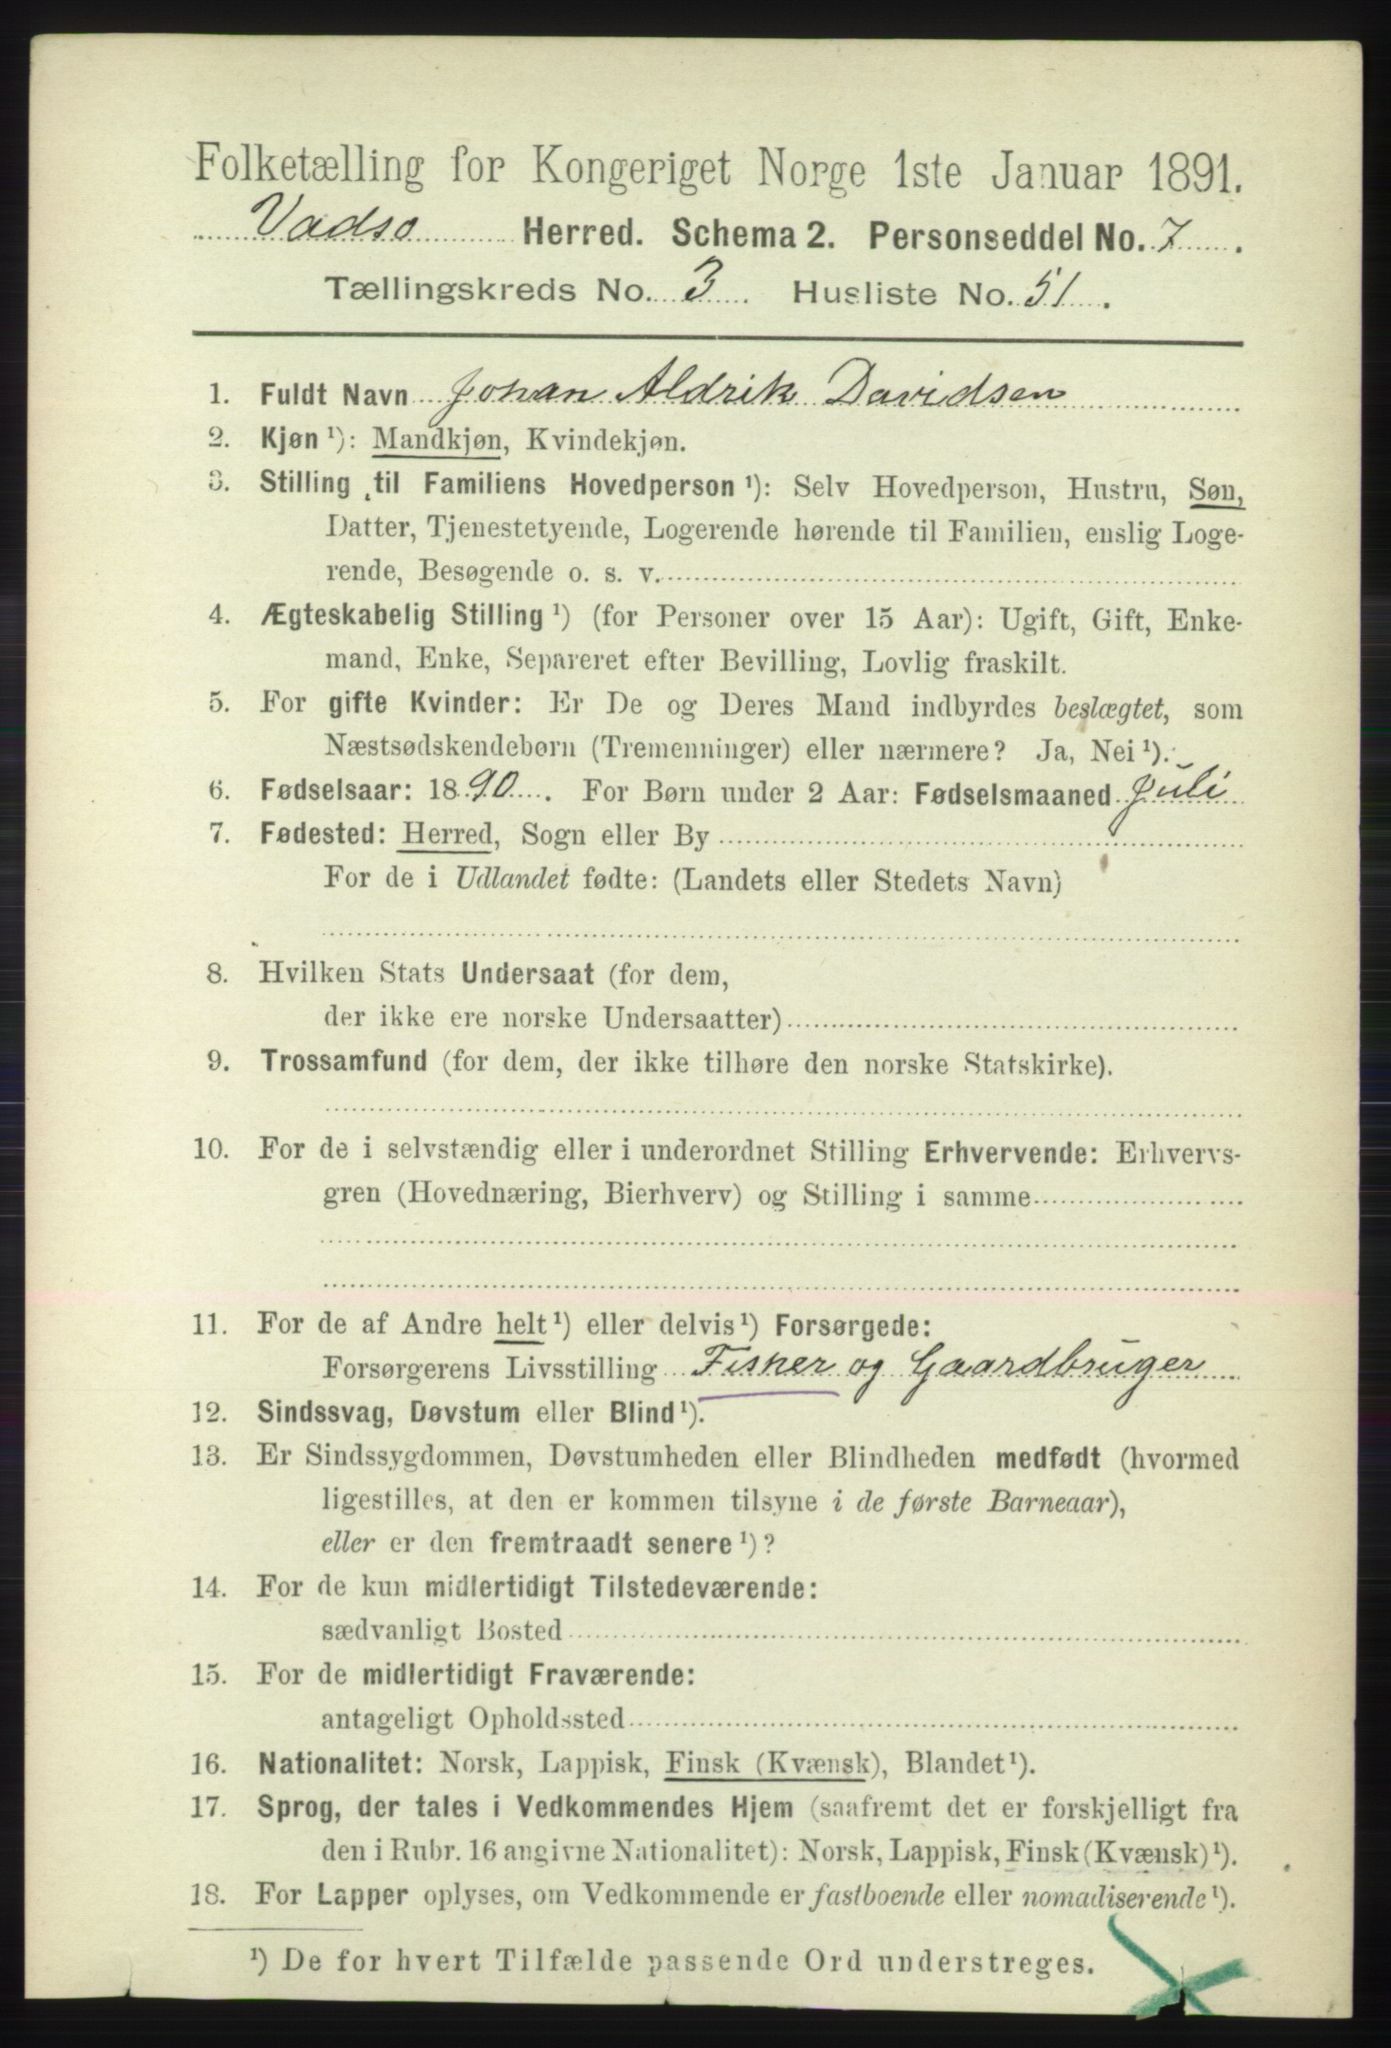 Folketælling for Kongeriget Norge 1ste Januar 1891.
Vadsø Herred. Schema 2. Personseddel No. 7.
Tællingskreds No. 3 Husliste No. 51.
1. Fuldt Navn Johan Aldrik Davidsen
2. Kjøn ¹): Mandkjøn, Kvindekjøn.
3. Stilling til Familiens Hovedperson ¹): Selv Hovedperson, Hustru, Søn,
Datter, Tjenestetyende, Logerende hørende til Familien, enslig Loge-
rende, Besøgende o. s. v.
4. Ægteskabelig Stilling ¹) (for Personer over 15 Aar): Ugift, Gift, Enke-
mand, Enke, Separeret efter Bevilling, Lovlig fraskilt.
5. For gifte Kvinder: Er De og Deres Mand indbyrdes beslægtet, som
Næstsødskendebørn (Tremenninger) eller nærmere? Ja, Nei ¹).
6. Fødselsaar: 1890. For Børn under 2 Aar: Fødselsmaaned Juli
7. Fødested: Herred, Sogn eller By
For de i Udlandet fødte: (Landets eller Stedets Navn)
8. Hvilken Stats Undersaat (for dem,
der ikke ere norske Undersaatter)
9. Trossamfund (for dem, der ikke tilhøre den norske Statskirke).
10. For de i selvstændig eller i underordnet Stilling Erhvervende: Erhvervs-
gren (Hovednæring, Bierhverv) og Stilling i samme
11. For de af Andre helt ¹) eller delvis ¹) Forsørgede:
Forsørgerens Livsstilling Fisker og Gaardbruger
12. Sindssvag, Døvstum eller Blind ¹).
13. Er Sindssygdommen, Døvstumheden eller Blindheden medfødt (hvormed
ligestilles, at den er kommen tilsyne i de første Barneaar),
eller er den fremtraadt senere ¹)?
14. For de kun midlertidigt Tilstedeværende:
sædvanligt Bosted
15. For de midlertidigt Fraværende:
antageligt Opholdssted
16. Nationalitet: Norsk, Lappisk, Finsk (Kvænsk), Blandet ¹).
17. Sprog, der tales i Vedkommendes Hjem (saafremt det er forskjelligt fra
den i Rubr. 16 angivne Nationalitet): Norsk, Lappisk, Finsk (Kvænsk) ¹).
18. For Lapper oplyses, om Vedkommende er fastboende eller nomadiserende ¹).
¹) De for hvert Tilfælde passende Ord understreges.